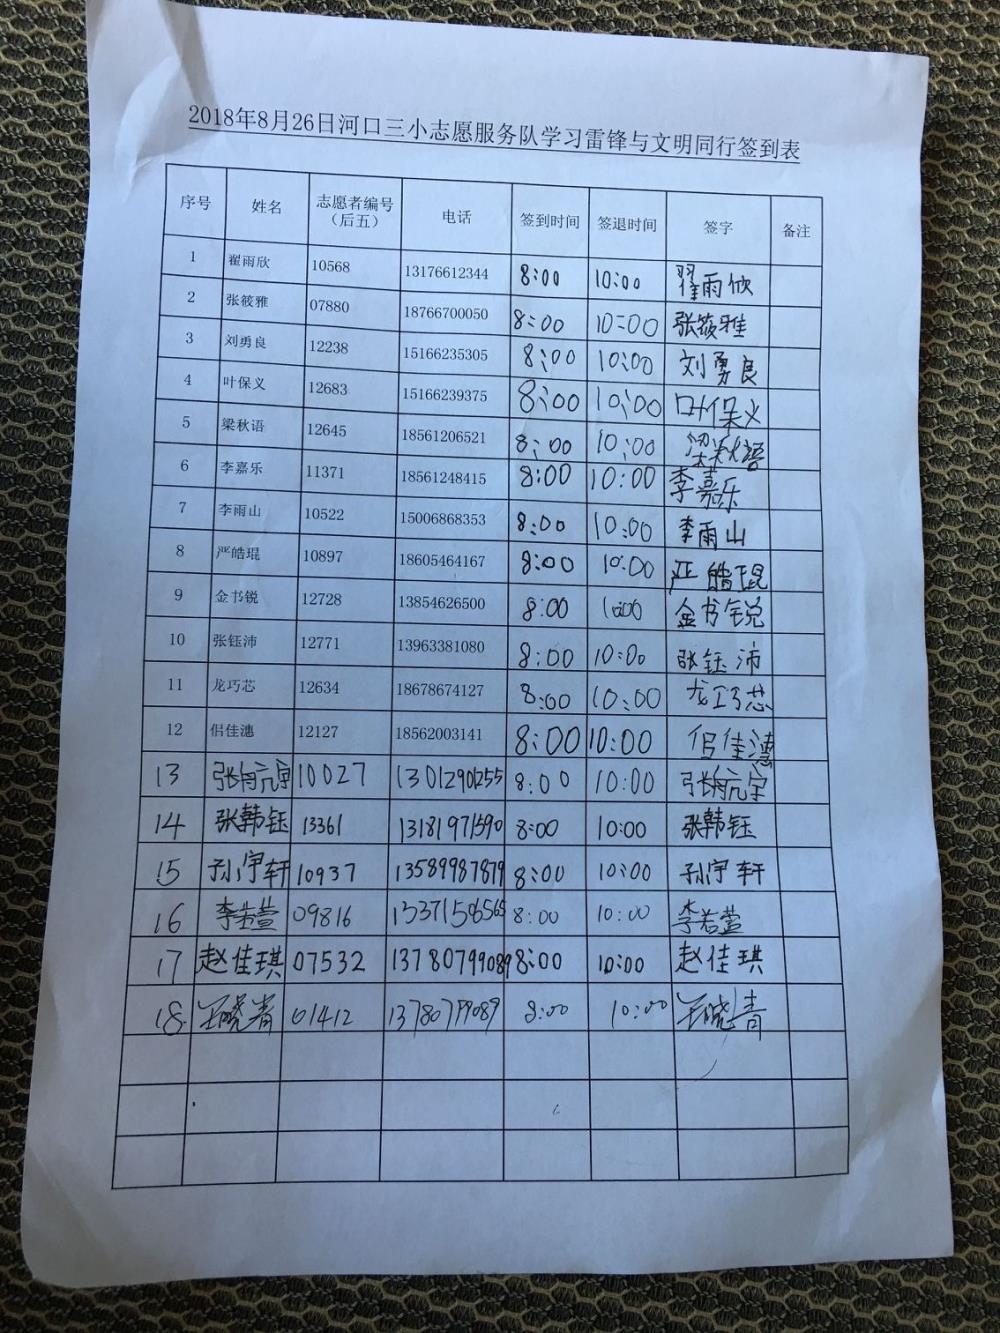 2018年8月26日河口三小志愿服务队学习雷锋与文明同行签到表
序号 姓名 志愿者编号（后五） 电话 签到时间 签退时间 签字 备注
1 翟雨欣 10568 13176612344 8:00 10:00 翟雨欣
2 张筱雅 07880 18766700050 8:00 10:00 张筱雅
3 刘勇良 12238 15166235305 8:00 10:00 刘勇良
4 叶保义 12683 15166239375 8:00 10:00 叶保义
5 梁秋语 12645 18561206521 8:00 10:00 梁秋语
6 李嘉乐 11371 18561248415 8:00 10:00 李嘉乐
7 李雨山 10522 15006868353 8:00 10:00 李雨山
8 严皓琨 10897 18605464167 8:00 10:00 严皓琨
9 金书锐 12728 13854626500 8:00 10:00 金书锐
10 张钰沛 12771 13963381080 8:00 10:00 张钰沛
11 龙巧芯 12634 18678674127 8:00 10:00 龙巧芯
12 侣佳漶 12127 18562003141 8:00 10:00 侣佳漶
13 10027 13012901255 8:00 10:00
14 张韩钰 13361 13181971590 8:00 10:00 张韩钰
15 孙宇轩 10937 13589987879 8:00 10:00 孙宇轩
16 李若萱 09816 13371586565 8:00 10:00 李若萱
17 赵佳琪 07532 13780799089 8:00 10:00 赵佳琪
18 王晓青 01412 13780799089 8:00 10:00 王晓青